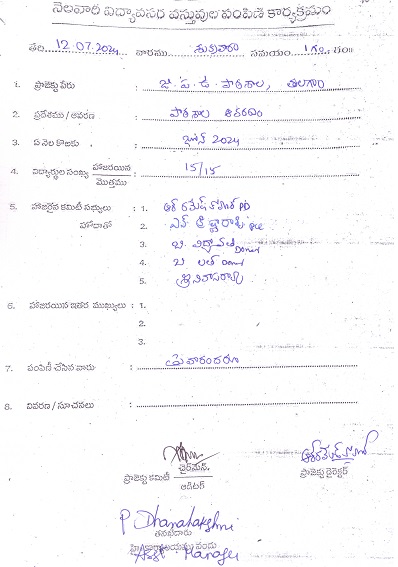 నెలవారి విద్యావసర వస్తువుల పంపిణి కార్యక్రమం
తేది 12.07.2024 వారము శుక్రవారం సమయం 1గం.
1. ప్రాజెక్టు పేరు : జి.ప.ఉ. పాఠశాల,
2. ప్రదేశము / ఆవరణ : పాఠశాల ఆవరణం
3. ఏ నెల కొఱకు : జూన్ 2024
4. విద్యార్థుల సంఖ్య హాజరయిన / మొత్తము : 15/15
5. హాజరైన కమిటీ సభ్యులు : 1. ఆర్ రమేష్ PD
హోదాతో 2.
3.
4. లత
5. శ్రీనివాసరావు
6. హాజరయిన ఇతర ముఖ్యులు : 1.
2.
3.
7. పంపిణీ చేసిన వారు : పై వారందరూ
8. వివరణ / సూచనలు :
ప్రాజెక్టు కమిటీ చైర్‌మెన్
ఆడిటర్
ప్రాజెక్టు డైరెక్టర్
P Dhanalakshmi